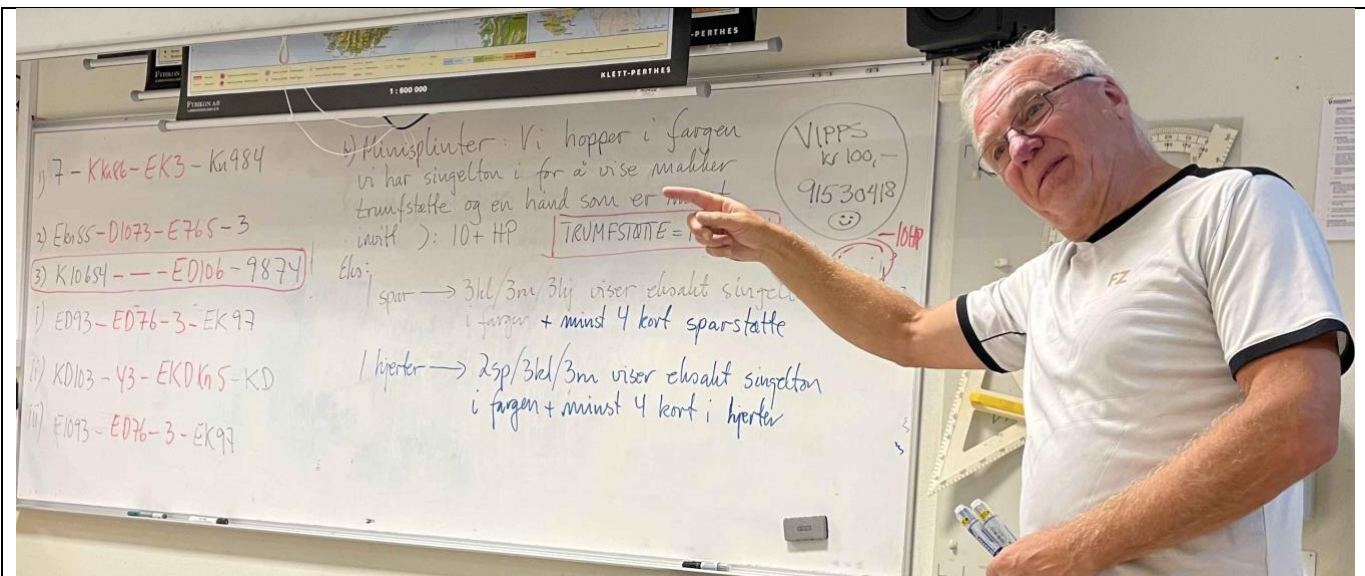 KLETT-PERTHES
-PERTHES
1 : 600 000
FYRIKON AB
1) 7 - KKn86 - EK3 - Kn984
2) EKn85 - D1073 - E765 - 3
3) K10654 - — - ED106 - 9874
i) ED93 - ED76 - 3 - EK97
ii) KD103 - 43 - EKDKn5 - KD
iii) E1093 - ED76 - 3 - EK97
Minisplinter: Vi hopper i fargen
vi har singelton i for å vise makker
trumfstøtte og en hånd som er
invitt ): 10+ HP
TRUMFSTØTTE =
Eks:
1 spar → 3kl/3ru/3hj viser eksakt
i fargen + minst 4 kort sparstøtte
1 hjerter → 2sp/3kl/3ru viser eksakt singelton
i fargen + minst 4 kort i hjerter
VIPPS
kr 100,-
91530418
-10HP
FZ